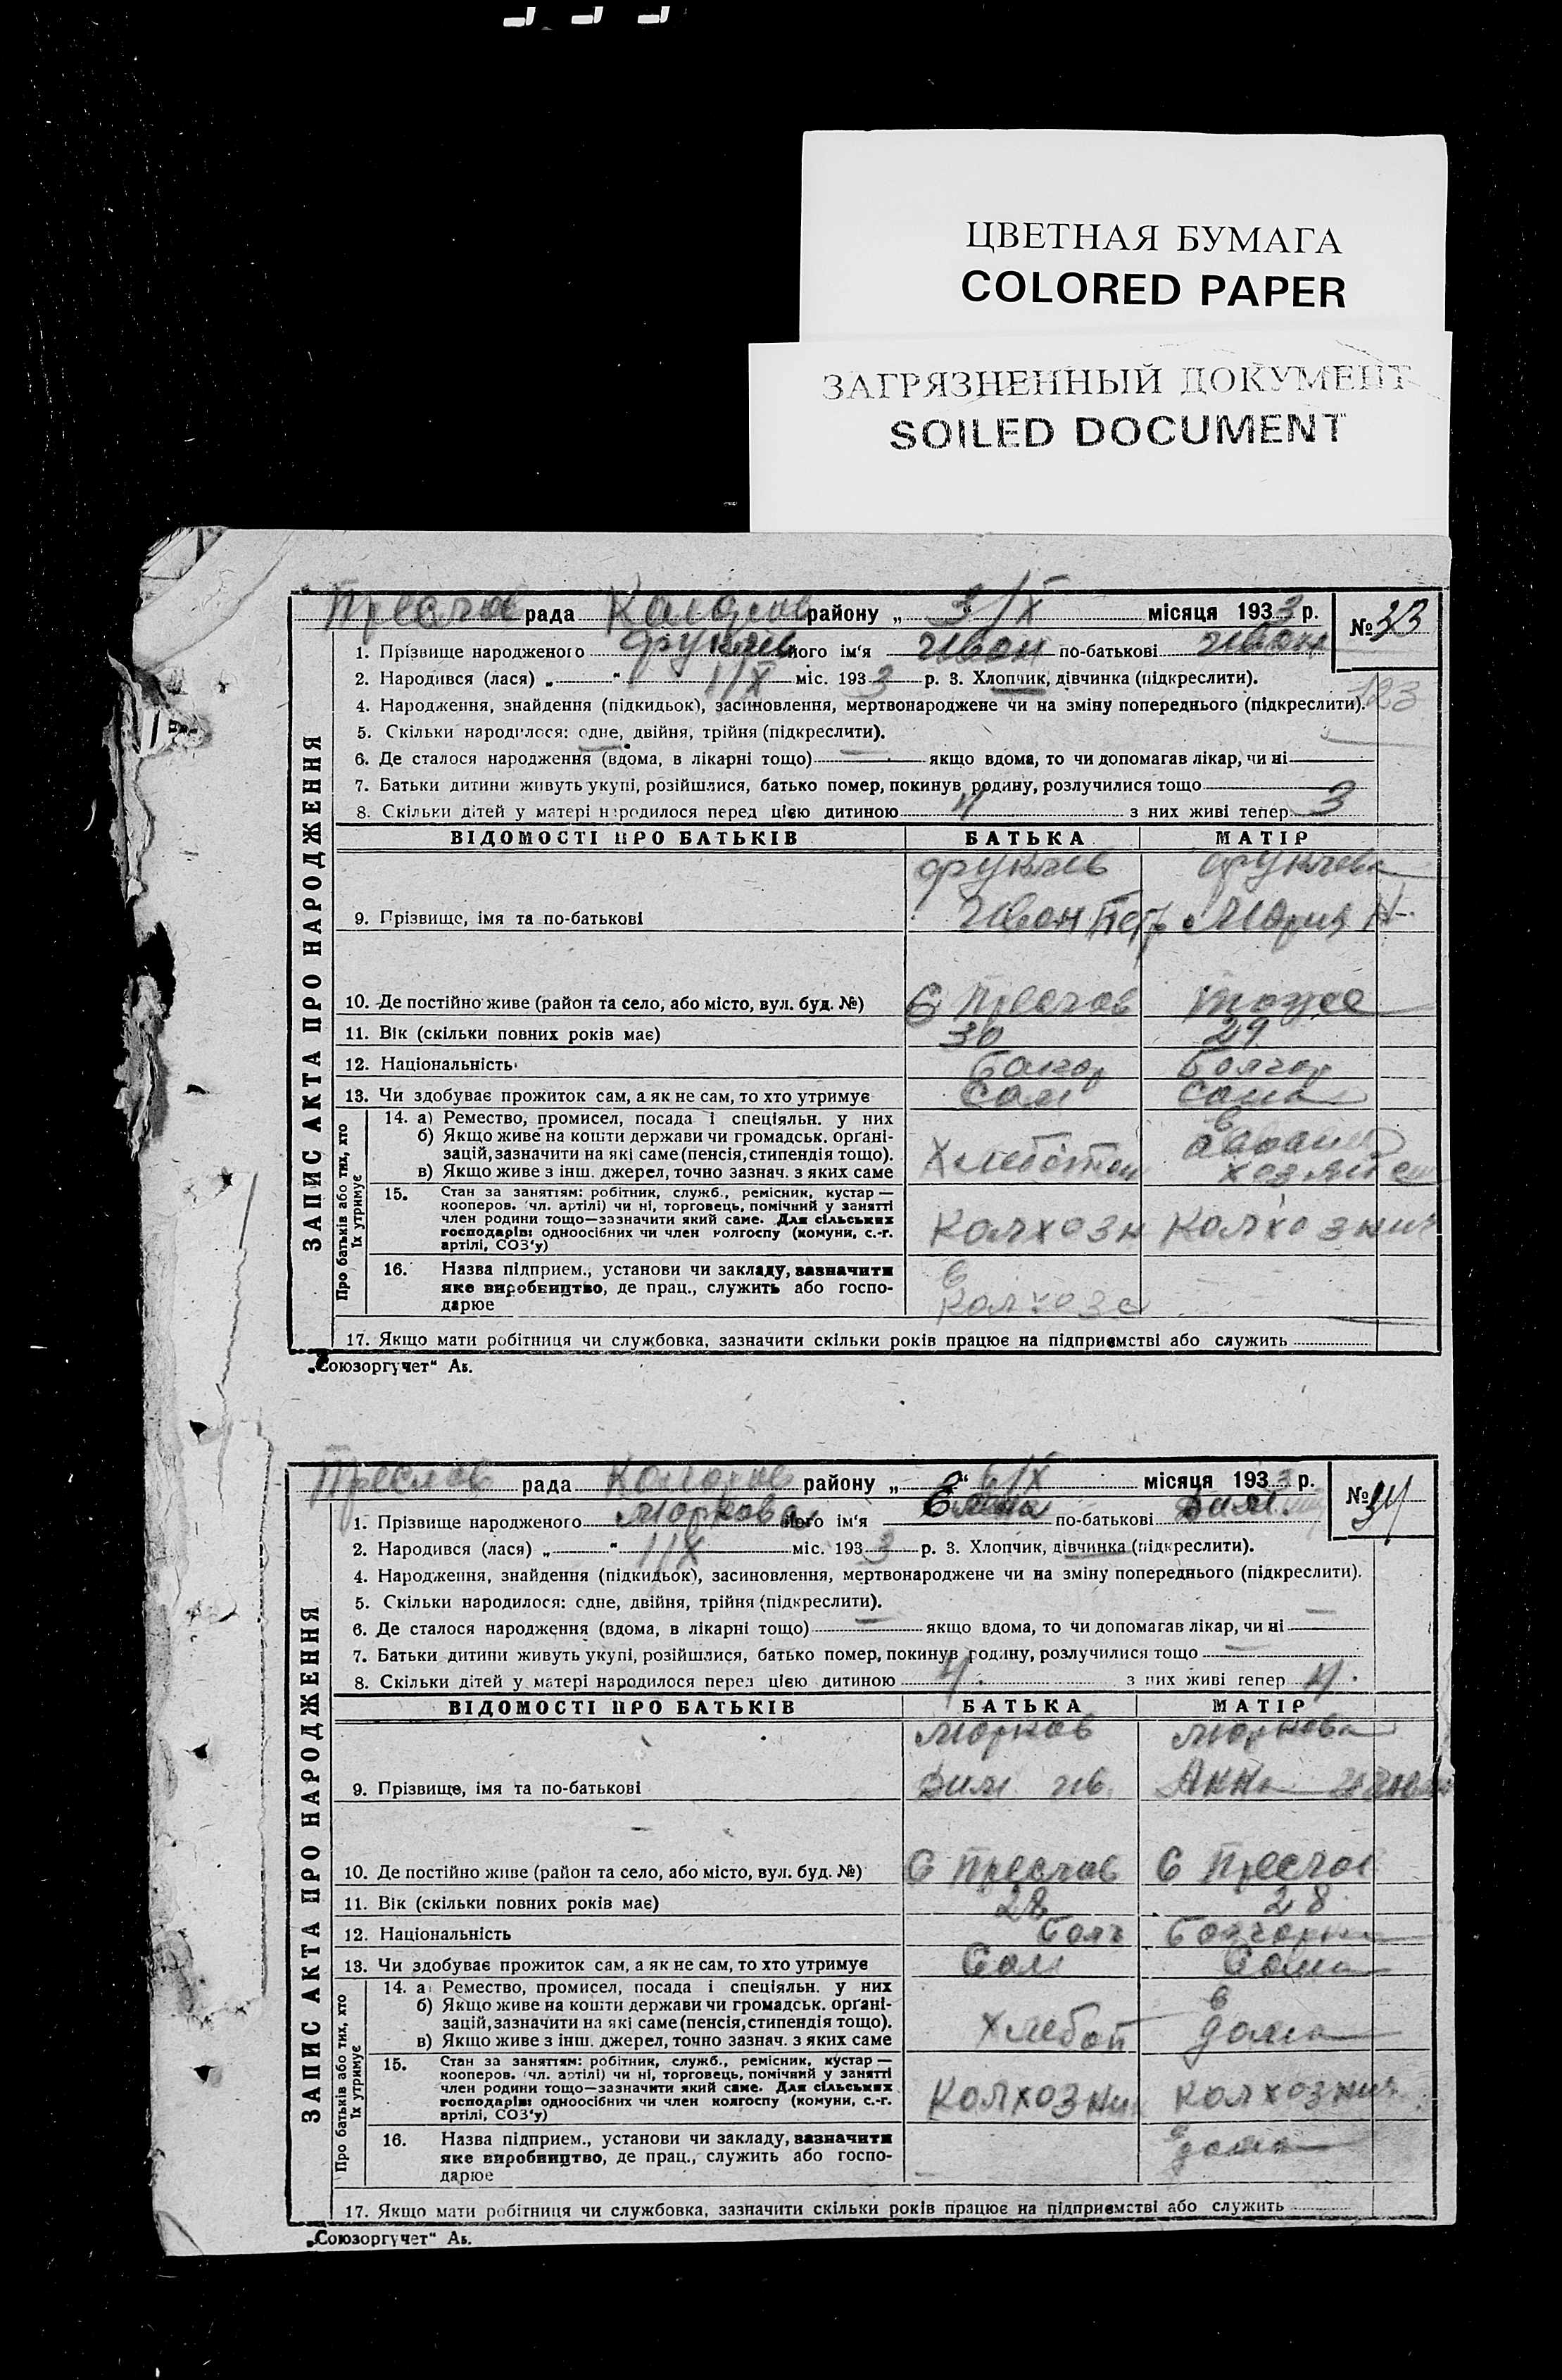 ЦВЕТНАЯ БУМАГА
COLORED PAPER
ЗАГРЯЗНЕННЫЙ ДОКУМЕНТ
SOILED DOCUMENT
рада району „ 3/X місяця 1933 р. №33
1. Прізвище народженого його ім'я Иван по-батькові Иван
2. Народився (лася) „ “ 1/X міс. 1933 р. 3. Хлопчик, дівчинка (підкреслити).
4. Народження, знайдення (підкидьок), засиновлення, мертвонароджене чи на зміну попереднього (підкреслити).
123
5. Скільки народилося: одне, двійня, трійня (підкреслити).
6. Де сталося народження (вдома, в лікарні тощо) якщо вдома, то чи допомагав лікар, чи ні
7. Батьки дитини живуть укупі, розійшлися, батько помер, покинув родину, розлучилися тощо
8. Скільки дітей у матері народилося перед цією дитиною 4 з них живі тепер 3
ЗАПИС АКТА ПРО НАРОДЖЕННЯ
ВІДОМОСТІ ПРО БАТЬКІВ БАТЬКА МАТІР
9. Прізвище, імя та по-батькові Иван Петр Мария Н
10. Де постійно живе (район та село, або місто, вул. буд. №) С Преслав тоже
11. Вік (скільки повних років має) 30 29
12. Національність Болгар
13. Чи здобуває прожиток сам, а як не сам, то хто утримує Сам Сама
Про батьків або тих, хто їх утримує
14. а) Ремество, промисел, посада і спеціяльн. у них
б) Якщо живе на кошти держави чи громадськ. органі-
зацій, зазначити на які саме (пенсія, стипендія тощо).
в) Якщо живе з інш. джерел, точно зазнач. з яких саме
15. Стан за заняттям: робітник, служб., ремісник, кустар —
кооперов. (чл. артілі) чи ні, торговець, помічний у занятті
член родини тощо—зазначити який саме. Для сільських
господарів: одноосібних чи член колгоспу (комуни, с.-г.
артілі, СОЗ'у)
Колхозн Колхозниц
16. Назва підприєм., установи чи закладу, зазначити
яке виробництво, де прац., служить або госпо-
дарює
в
колхозе
17. Якщо мати робітниця чи службовка, зазначити скільки років працює на підприємстві або служить
„Союзоргучет“ Ав.
Преслав рада району „ “ 6/X місяця 1933 р. №34
1. Прізвище народженого Маркова його ім'я Елена по-батькові Дим.
2. Народився (лася) „ “ 1/X міс. 1933 р. 3. Хлопчик, дівчинка (підкреслити).
4. Народження, знайдення (підкидьок), засиновлення, мертвонароджене чи на зміну попереднього (підкреслити).
5. Скільки народилося: одне, двійня, трійня (підкреслити).
6. Де сталося народження (вдома, в лікарні тощо) якщо вдома, то чи допомагав лікар, чи ні
7. Батьки дитини живуть укупі, розійшлися, батько помер, покинув родину, розлучилися тощо
8. Скільки дітей у матері народилося перед цією дитиною 4 з них живі тепер 4
ЗАПИС АКТА ПРО НАРОДЖЕННЯ
ВІДОМОСТІ ПРО БАТЬКІВ БАТЬКА МАТІР
Марков Маркова
9. Прізвище, імя та по-батькові Дим Ив. Анна
10. Де постійно живе (район та село, або місто, вул. буд. №) С Преслав С Преслав
11. Вік (скільки повних років має) 28 28
12. Національність Болг Болгарка
13. Чи здобуває прожиток сам, а як не сам, то хто утримує Сам Сама
Про батьків або тих, хто їх утримує
14. а) Ремество, промисел, посада і спеціяльн. у них
б) Якщо живе на кошти держави чи громадськ. органі-
зацій, зазначити на які саме (пенсія, стипендія тощо).
в) Якщо живе з інш. джерел, точно зазнач. з яких саме
в
дома
15. Стан за заняттям: робітник, служб., ремісник, кустар —
кооперов. (чл. артілі) чи ні, торговець, помічний у занятті
член родини тощо—зазначити який саме. Для сільських
господарів: одноосібних чи член колгоспу (комуни, с.-г.
артілі, СОЗ'у)
Колхозни колхозниц
16. Назва підприєм., установи чи закладу, зазначити
яке виробництво, де прац., служить або госпо-
дарює
дома
17. Якщо мати робітниця чи службовка, зазначити скільки років працює на підприємстві або служить
„Союзоргучет“ Ав.